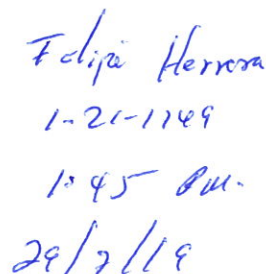 Felipe Herrera
1-21-1749
1:45 P.M.
29/7/19